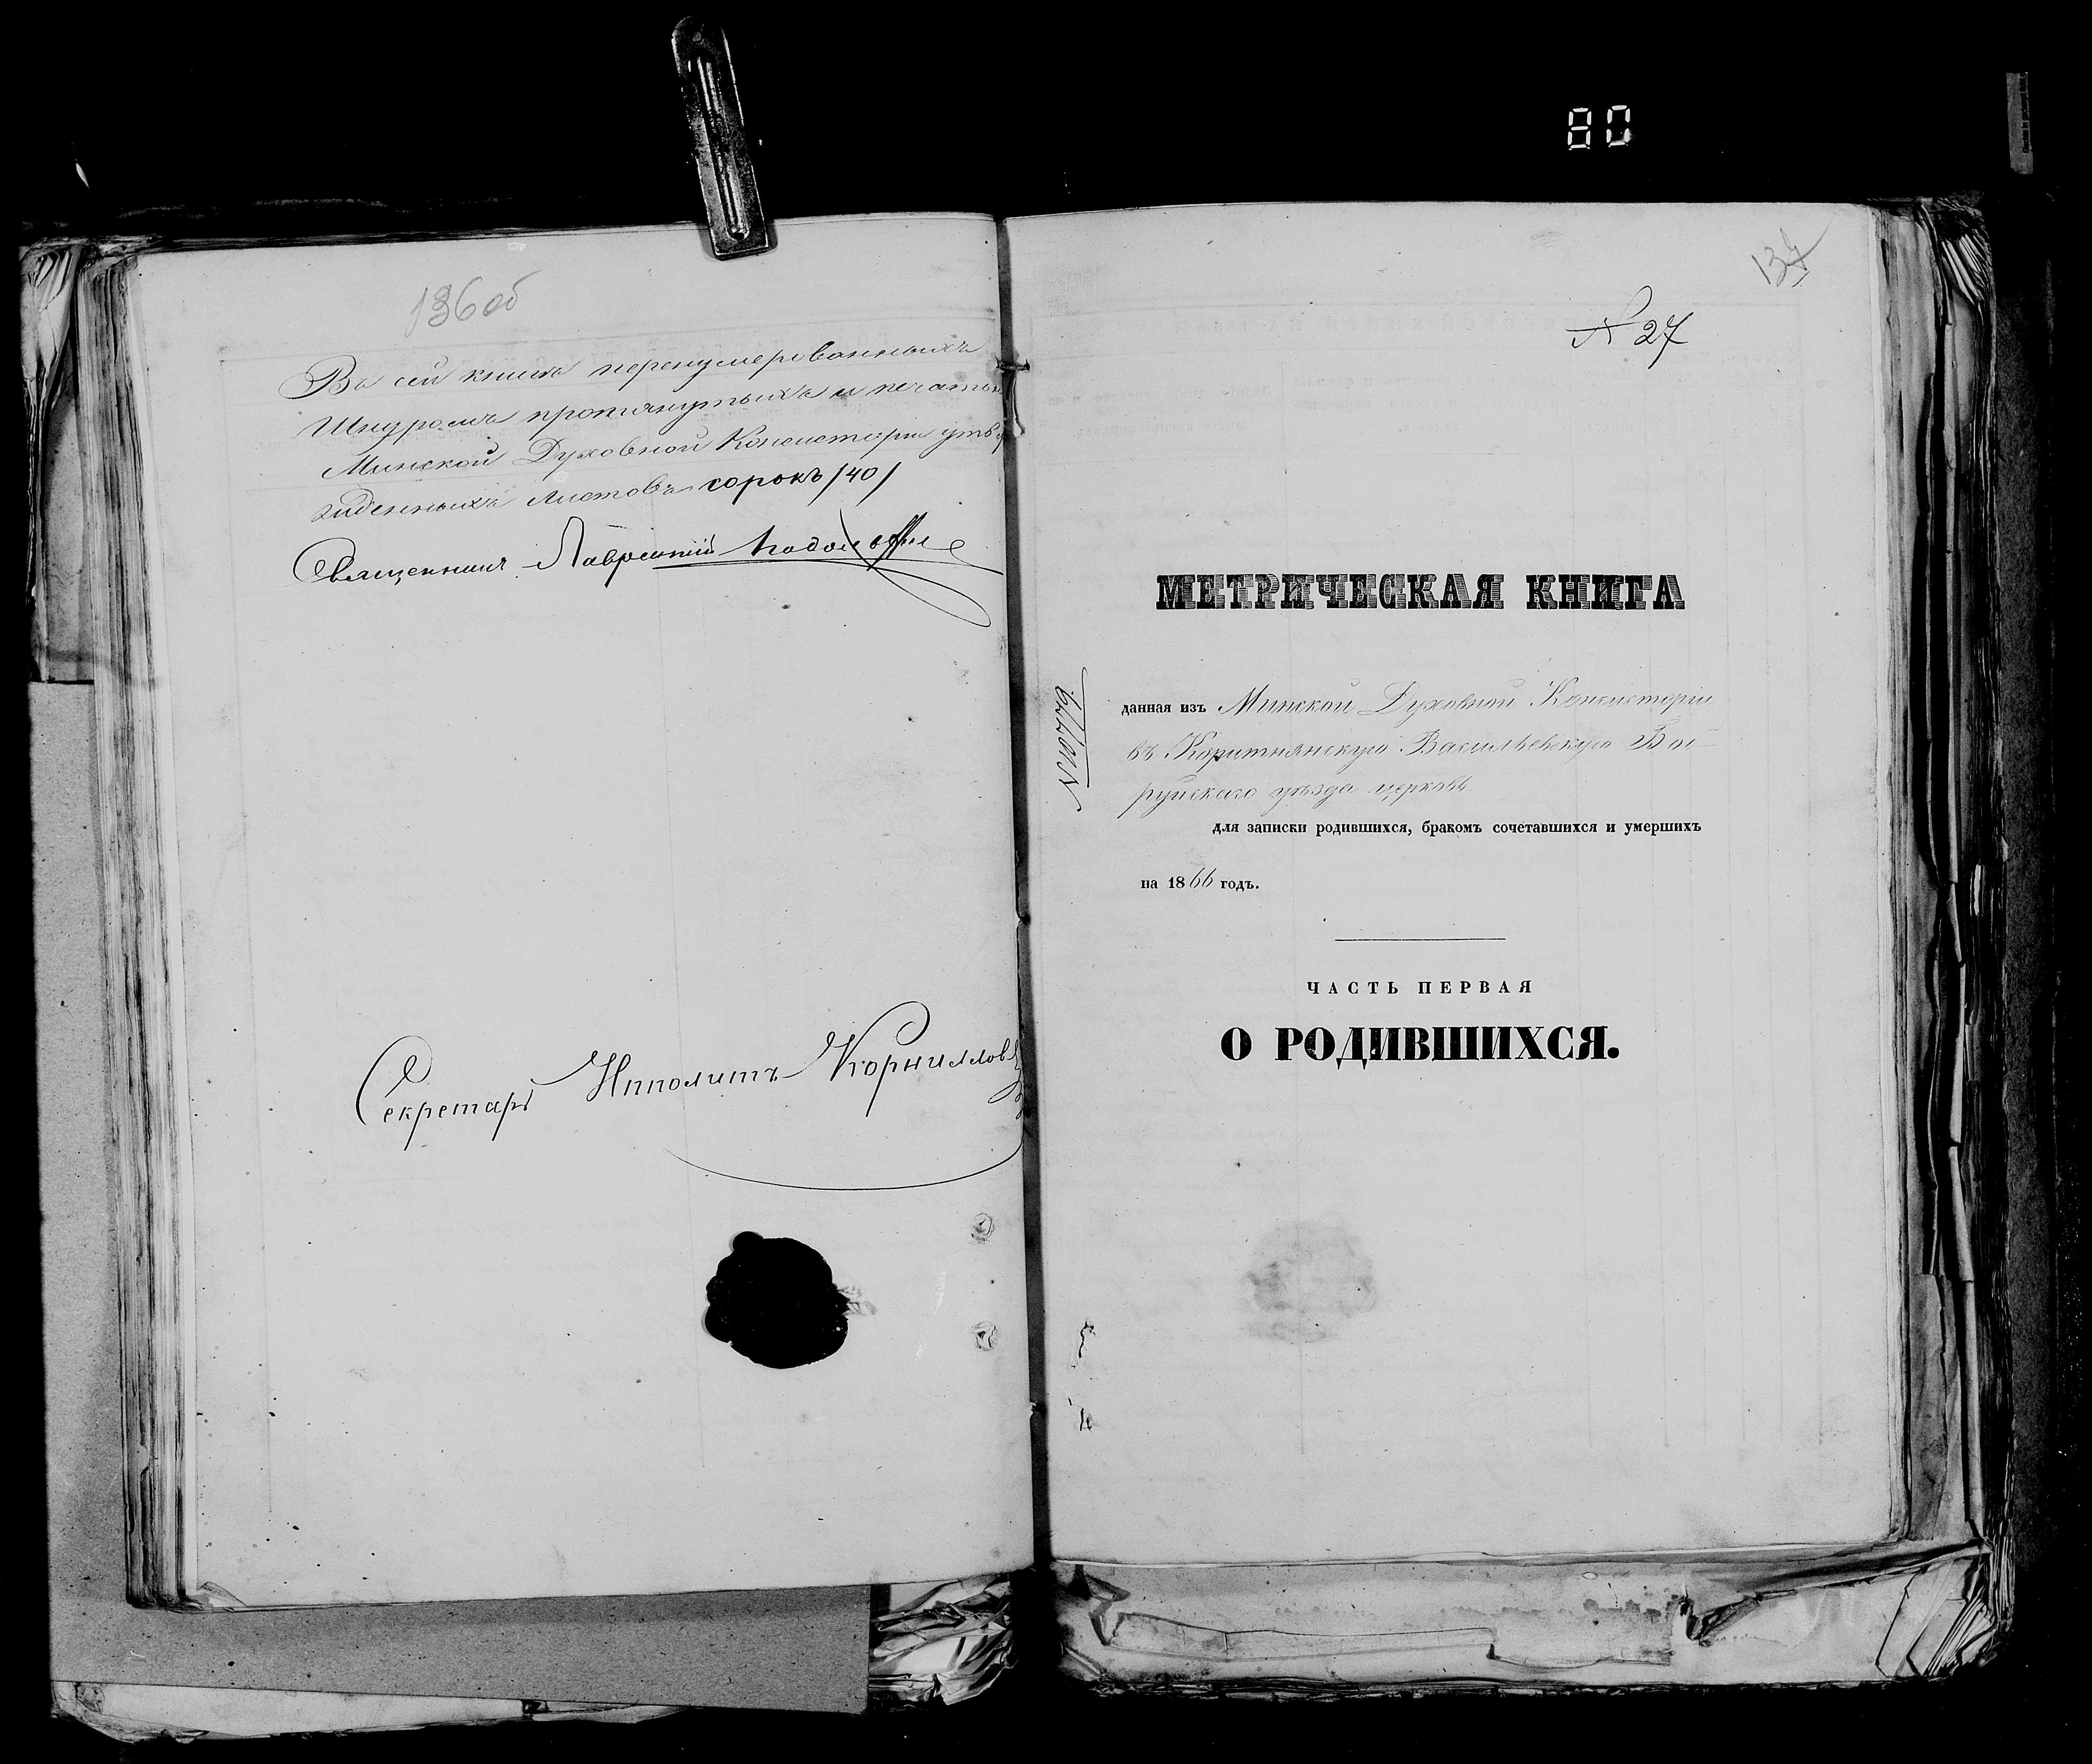 80
136 об
Въ сей книгѣ перенумерованныхъ
Шнуромъ протянутыхъ и печатью
Минской Духовной Консисторіи утвер
жденныхъ листовъ сорокъ /40/
Священникъ Лаврентій
Секретарь Ипполитъ Корниллов
137
№ 27
МЕТРИЧЕСКАЯ КНИГА
данная изъ Минской Духовной Консисторіи
въ Коритнянскую Васильевскую Боб-
руйскаго уѣзда церковь
для записки родившихся, бракомъ сочетавшихся и умершихъ
на 1866 годъ.
ЧАСТЬ ПЕРВАЯ
О РОДИВШИХСЯ.